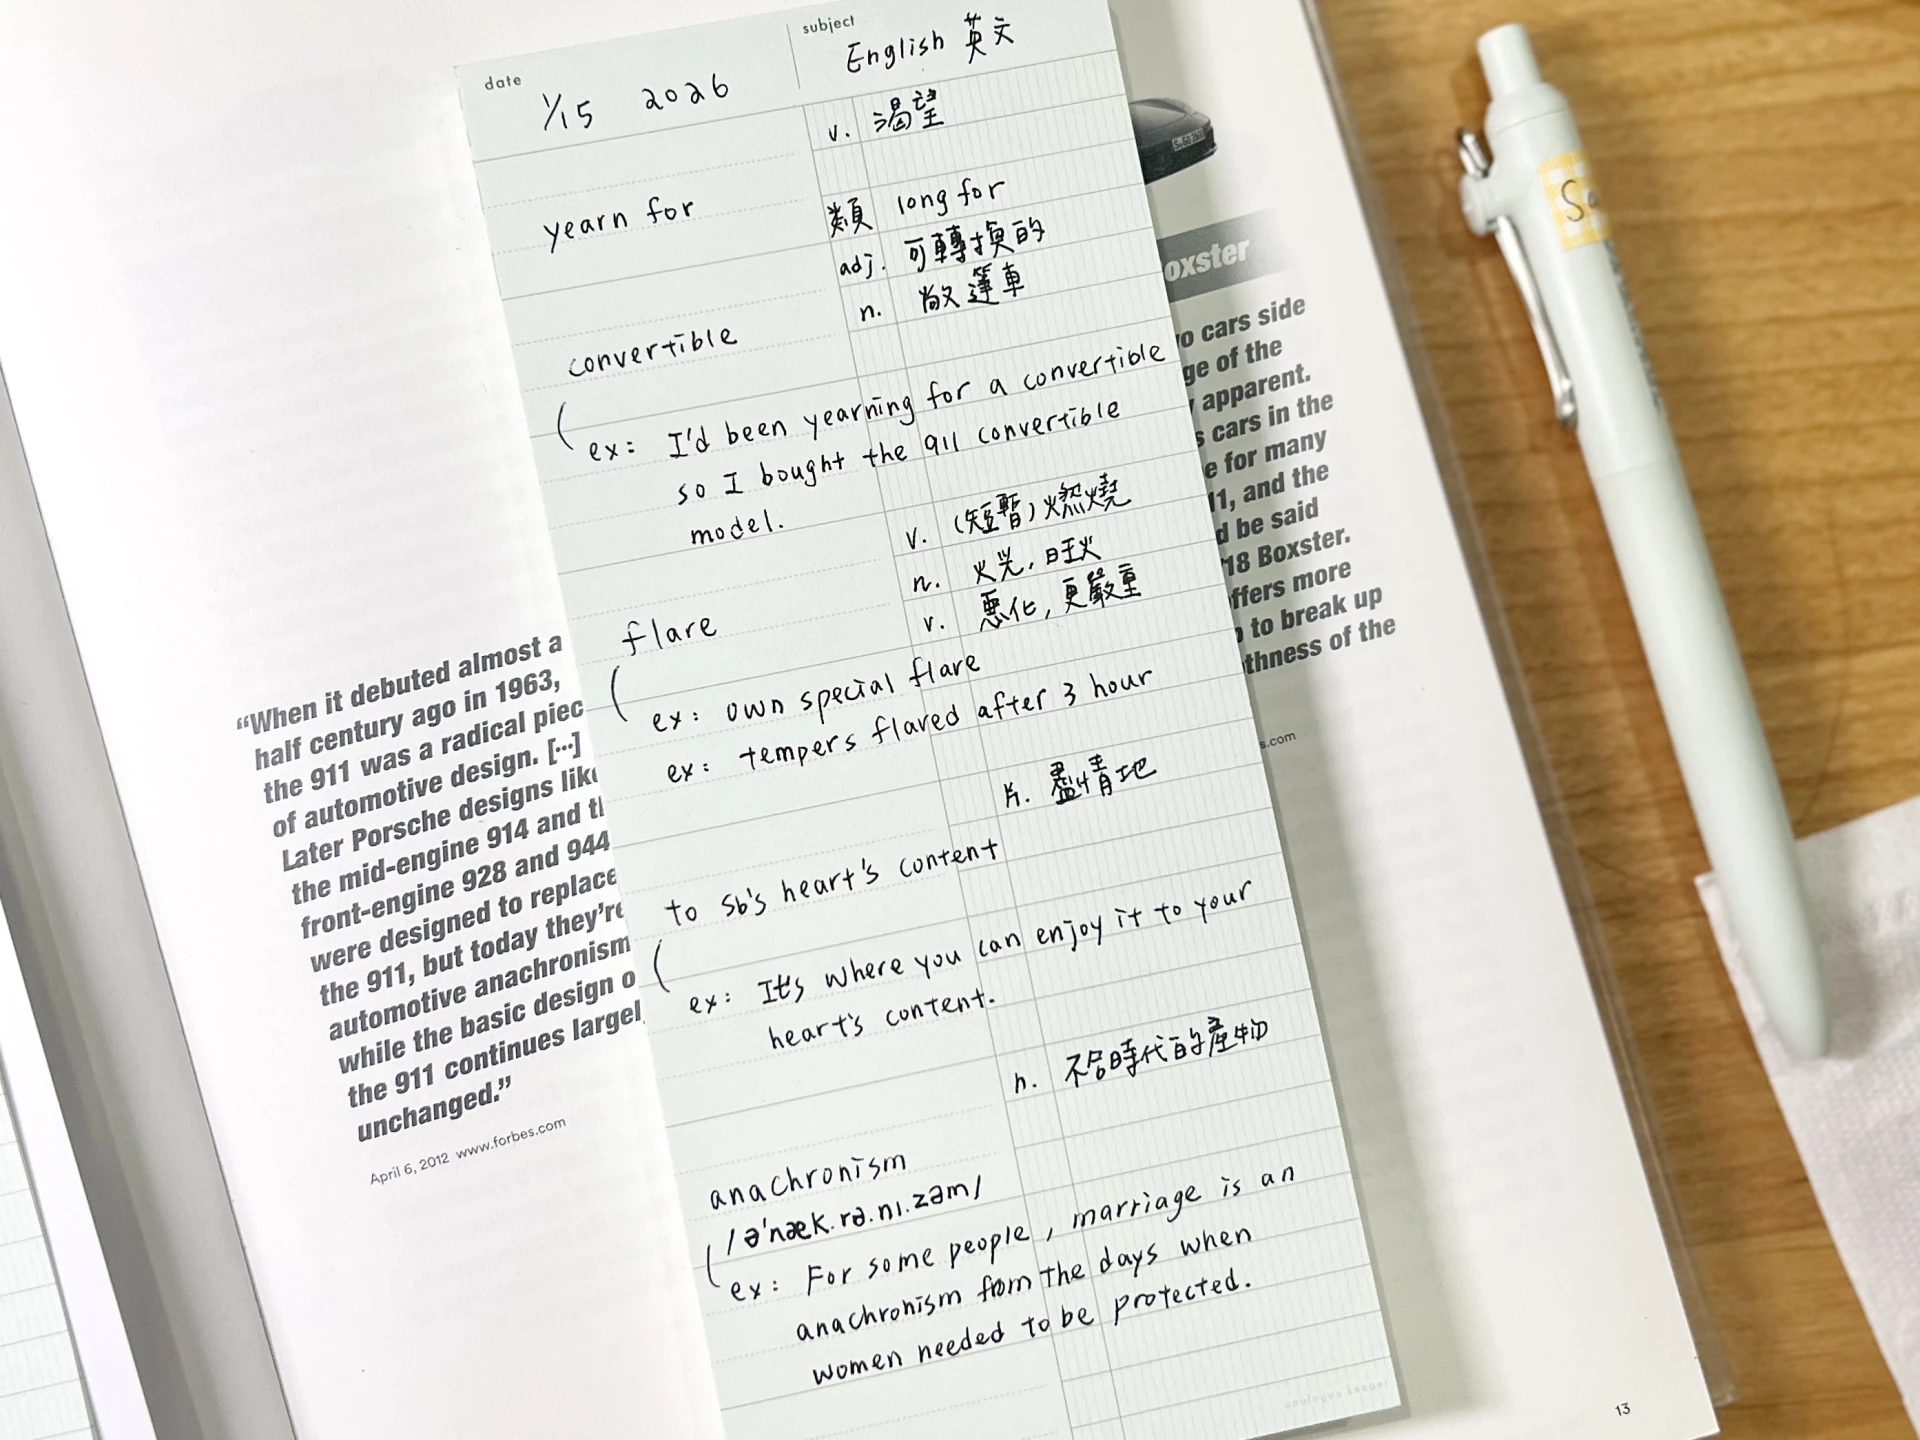 date
1/15 2026
subject
English 英文
yearn for
v. 渴望
類 long for
convertible
adj. 可轉換的
n. 敞篷車
ex: I'd been yearning for a convertible
so I bought the 911 convertible
model.
flare
v. (短暫)燃燒
n. 火光,旺火
v. 惡化,更嚴重
ex: own special flare
ex: tempers flared after 3 hour
to sb's heart's content
片. 盡情地
ex: It's where you can enjoy it to your
heart's content.
anachronism
/ə'næk.rə.nɪ.zəm/
n. 不合時代的產物
ex: For some people, marriage is an
anachronism from the days when
women needed to be protected.
analogue keeper
“When it debuted almost a
half century ago in 1963,
the 911 was a radical piec
of automotive design. [...]
Later Porsche designs like
the mid-engine 914 and th
front-engine 928 and 944
were designed to replace
the 911, but today they're
automotive anachronism
while the basic design o
the 911 continues largel
unchanged.”
April 6, 2012 www.forbes.com
oxster
o cars side
ge of the
apparent.
s cars in the
e for many
11, and the
d be said
18 Boxster.
ffers more
to break up
thness of the
s.com
13